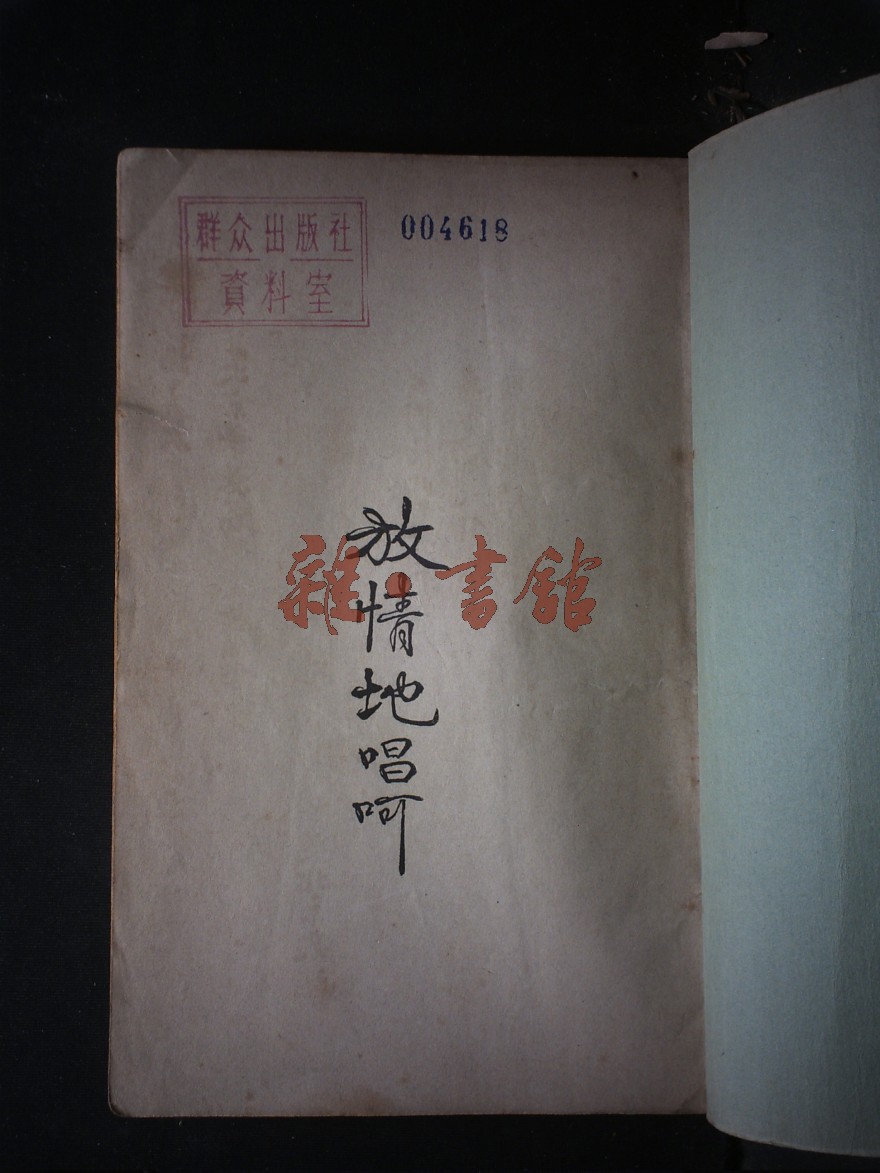 群众出版社
資料室
004618
放情地唱呵
雜·書舘